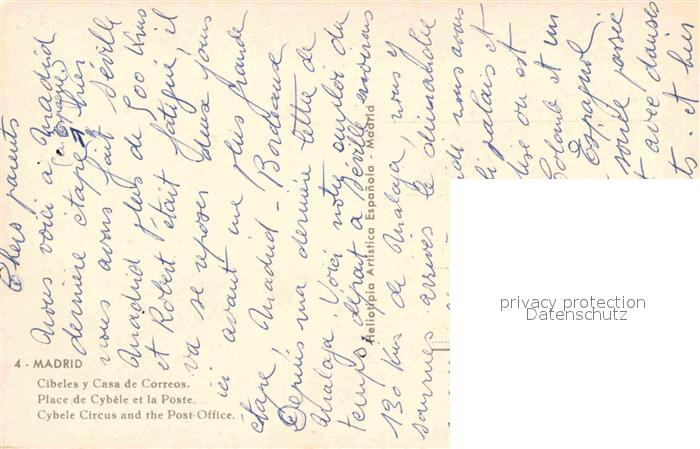 Chers parents
Nous voici à Madrid
(en Espagne)
dernière étape. Hier
nous avons fait Séville
Madrid plus de 500 kms
et Robert était fatigué, il
va se reposer deux jours
ici avant une plus grande
étape, Madrid - Bordeaux.
Depuis ma dernière lettre de
Malaga. Voici notre emploi du
temps, départ à Séville environ
130 kms de Malaga, nous y
sommes arrivés le dimanche
nous avons
palais et
ou est
Colomb et un
Espagnol
soirée passée
avec danses
et
4 - MADRID
Cibeles y Casa de Correos.
Place de Cybèle et la Poste.
Cybele Circus and the Post-Office.
Heliotipia Artística Española - Madrid
privacy protection
Datenschutz